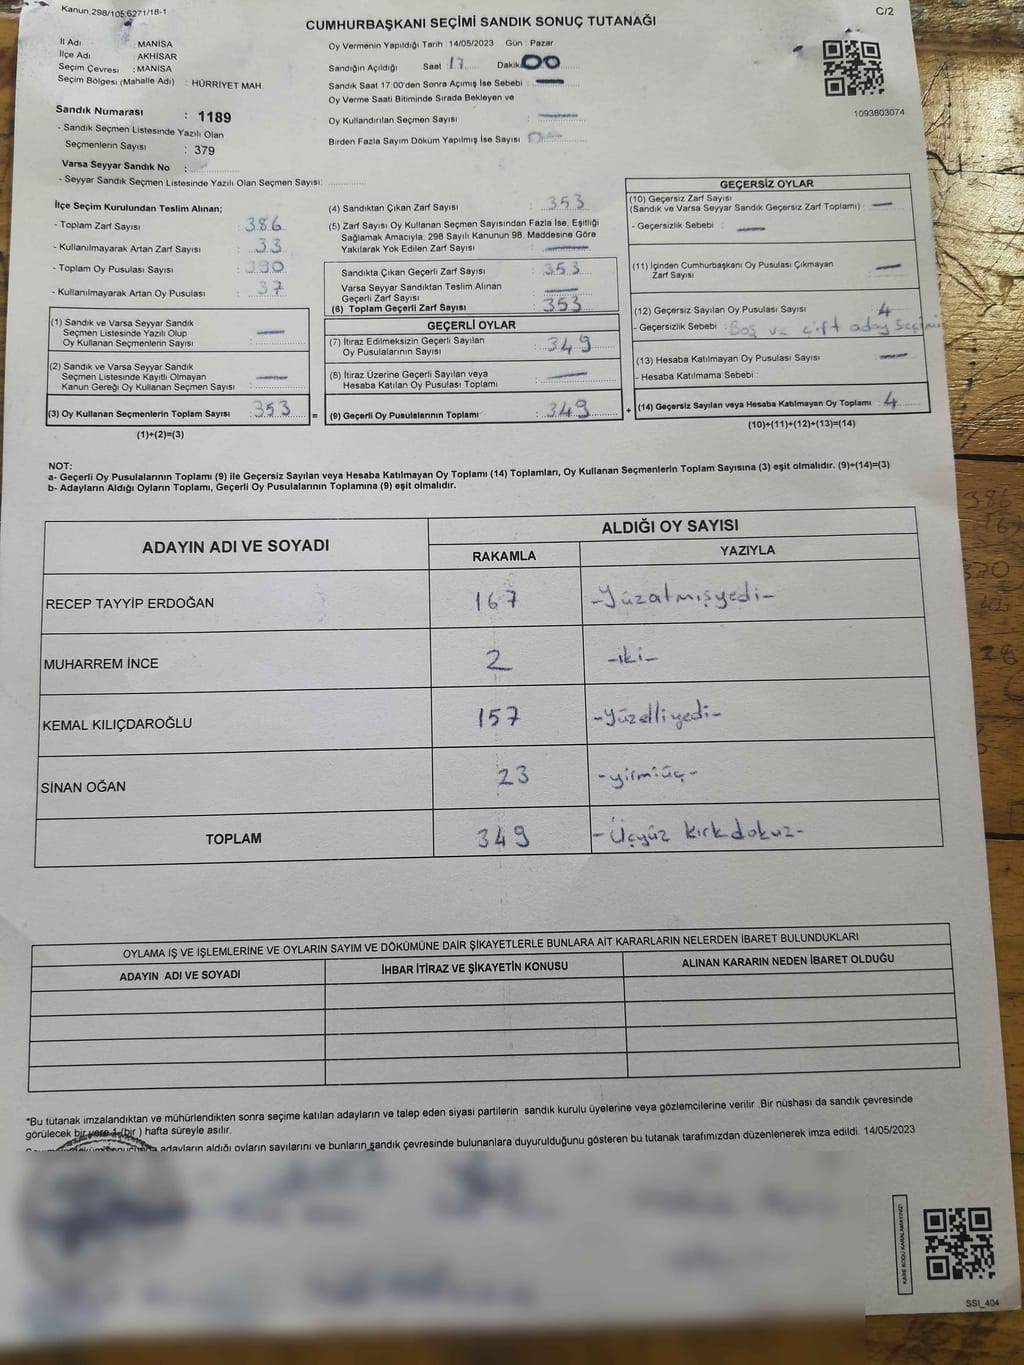 Kanun:298/105,6271/18-1
C/2
CUMHURBAŞKANI SEÇİMİ SANDIK SONUÇ TUTANAĞI
İl Adı : MANİSA
İlçe Adı : AKHİSAR
Seçim Çevresi : MANİSA
Seçim Bölgesi (Mahalle Adı) : HÜRRİYET MAH.
Sandık Numarası : 1189
- Sandık Seçmen Listesinde Yazılı Olan
Seçmenlerin Sayısı : 379
Varsa Seyyar Sandık No :
- Seyyar Sandık Seçmen Listesinde Yazılı Olan Seçmen Sayısı:
Oy Vermenin Yapıldığı Tarih : 14/05/2023 Gün : Pazar
Sandığın Açıldığı Saat 17 Dakika 00
Sandık Saat 17:00'den Sonra Açımış İse Sebebi : —
Oy Verme Saati Bitiminde Sırada Bekleyen ve
Oy Kullandırılan Seçmen Sayısı : —
Birden Fazla Sayım Döküm Yapılmış İse Sayısı :
1093803074
İlçe Seçim Kurulundan Teslim Alınan;
- Toplam Zarf Sayısı : 386
- Kullanılmayarak Artan Zarf Sayısı : 33
- Toplam Oy Pusulası Sayısı : 390
- Kullanılmayarak Artan Oy Pusulası : 37
(1) Sandık ve Varsa Seyyar Sandık
Seçmen Listesinde Yazılı Olup
Oy Kullanan Seçmenlerin Sayısı : —
(2) Sandık ve Varsa Seyyar Sandık
Seçmen Listesinde Kayıtlı Olmayan
Kanun Gereği Oy Kullanan Seçmen Sayısı : —
(3) Oy Kullanan Seçmenlerin Toplam Sayısı : 353 =
(1)+(2)=(3)
(4) Sandıktan Çıkan Zarf Sayısı : 353
(5) Zarf Sayısı Oy Kullanan Seçmen Sayısından Fazla İse, Eşitliği
Sağlamak Amacıyla; 298 Sayılı Kanunun 98. Maddesine Göre
Yakılarak Yok Edilen Zarf Sayısı : —
Sandıkta Çıkan Geçerli Zarf Sayısı : 353
Varsa Seyyar Sandıktan Teslim Alınan
Geçerli Zarf Sayısı : —
(6) Toplam Geçerli Zarf Sayısı : 353
GEÇERLİ OYLAR
(7) İtiraz Edilmeksizin Geçerli Sayılan
Oy Pusulalarının Sayısı : 349
(8) İtiraz Üzerine Geçerli Sayılan veya
Hesaba Katılan Oy Pusulası Toplamı : —
(9) Geçerli Oy Pusulalarının Toplamı : 349 +
GEÇERSİZ OYLAR
(10) Geçersiz Zarf Sayısı
(Sandık ve Varsa Seyyar Sandık Geçersiz Zarf Toplamı) : —
- Geçersizlik Sebebi : —
(11) İçinden Cumhurbaşkanı Oy Pusulası Çıkmayan
Zarf Sayısı : —
(12) Geçersiz Sayılan Oy Pusulası Sayısı : 4
- Geçersizlik Sebebi : Boş ve çift aday seçimi
(13) Hesaba Katılmayan Oy Pusulası Sayısı : —
- Hesaba Katılmama Sebebi :
(14) Geçersiz Sayılan veya Hesaba Katılmayan Oy Toplamı : 4
(10)+(11)+(12)+(13)=(14)
NOT:
a- Geçerli Oy Pusulalarının Toplamı (9) ile Geçersiz Sayılan veya Hesaba Katılmayan Oy Toplamı (14) Toplamları, Oy Kullanan Seçmenlerin Toplam Sayısına (3) eşit olmalıdır. (9)+(14)=(3)
b- Adayların Aldığı Oyların Toplamı, Geçerli Oy Pusulalarının Toplamına (9) eşit olmalıdır.
ADAYIN ADI VE SOYADI
ALDIĞI OY SAYISI
RAKAMLA YAZIYLA
RECEP TAYYİP ERDOĞAN 167 -Yüzatmışyedi-
MUHARREM İNCE 2 -iki-
KEMAL KILIÇDAROĞLU 157 -Yüzelliyedi-
SİNAN OĞAN 23 -yirmiüç-
TOPLAM 349 -Üçyüz kırkdokuz-
OYLAMA İŞ VE İŞLEMLERİNE VE OYLARIN SAYIM VE DÖKÜMÜNE DAİR ŞİKAYETLERLE BUNLARA AİT KARARLARIN NELERDEN İBARET BULUNDUKLARI
ADAYIN ADI VE SOYADI İHBAR İTİRAZ VE ŞİKAYETİN KONUSU ALINAN KARARIN NEDEN İBARET OLDUĞU
*Bu tutanak imzalandıktan ve mühürlendikten sonra seçime katılan adayların ve talep eden siyasi partilerin sandık kurulu üyelerine veya gözlemcilerine verilir .Bir nüshası da sandık çevresinde
görülecek bir yere 1 (bir ) hafta süreyle asılır.
adayların aldığı oyların sayılarını ve bunların sandık çevresinde bulunanlara duyurulduğunu gösteren bu tutanak tarafımızdan düzenlenerek imza edildi. 14/05/2023
KARE KODU KARALAMAYINIZ!
SSI_404